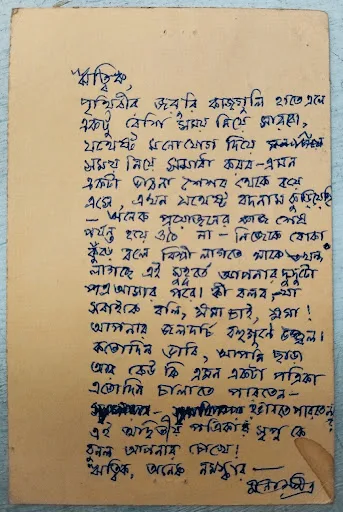 ঋত্বিক,
পৃথিবীর জরুরি কাজগুলি হাতে এলে
একটু বেশি সময় নিয়ে সারবো,
যথেষ্ট মনোযোগ দিয়ে
সময় নিয়ে সমাধা করব - এমন
একটা ভাবনা শৈশব থেকে বয়ে
এসে, এখন যথেষ্ট বদনাম কুড়িয়েছি
- অনেক প্রয়োজনের কাজ শেষ
পর্যন্ত হয়ে ওঠে না - নিজেকে বোকা
কুঁড়ে বলে বিশ্রী লাগতে থাকে তখন
লাগছে এই মুহূর্তে আপনার দু'দুটো
পত্র আসার পরে। কী বলব, যা
সবাইকে বলি, ক্ষমা চাই, ক্ষমা!
আপনার জলদর্চি বহুগুণে উজ্জ্বল।
কতোদিন ভাবি, আপনি ছাড়া
আর কেউ কি এমন একটা পত্রিকা
এতোদিন চালাতে পারতেন -
পারতেন?
এই অদ্বিতীয় পত্রিকার স্বপ্ন কে
বুনল আপনার চোখে!
ঋত্বিক, অনেক নমস্কার -